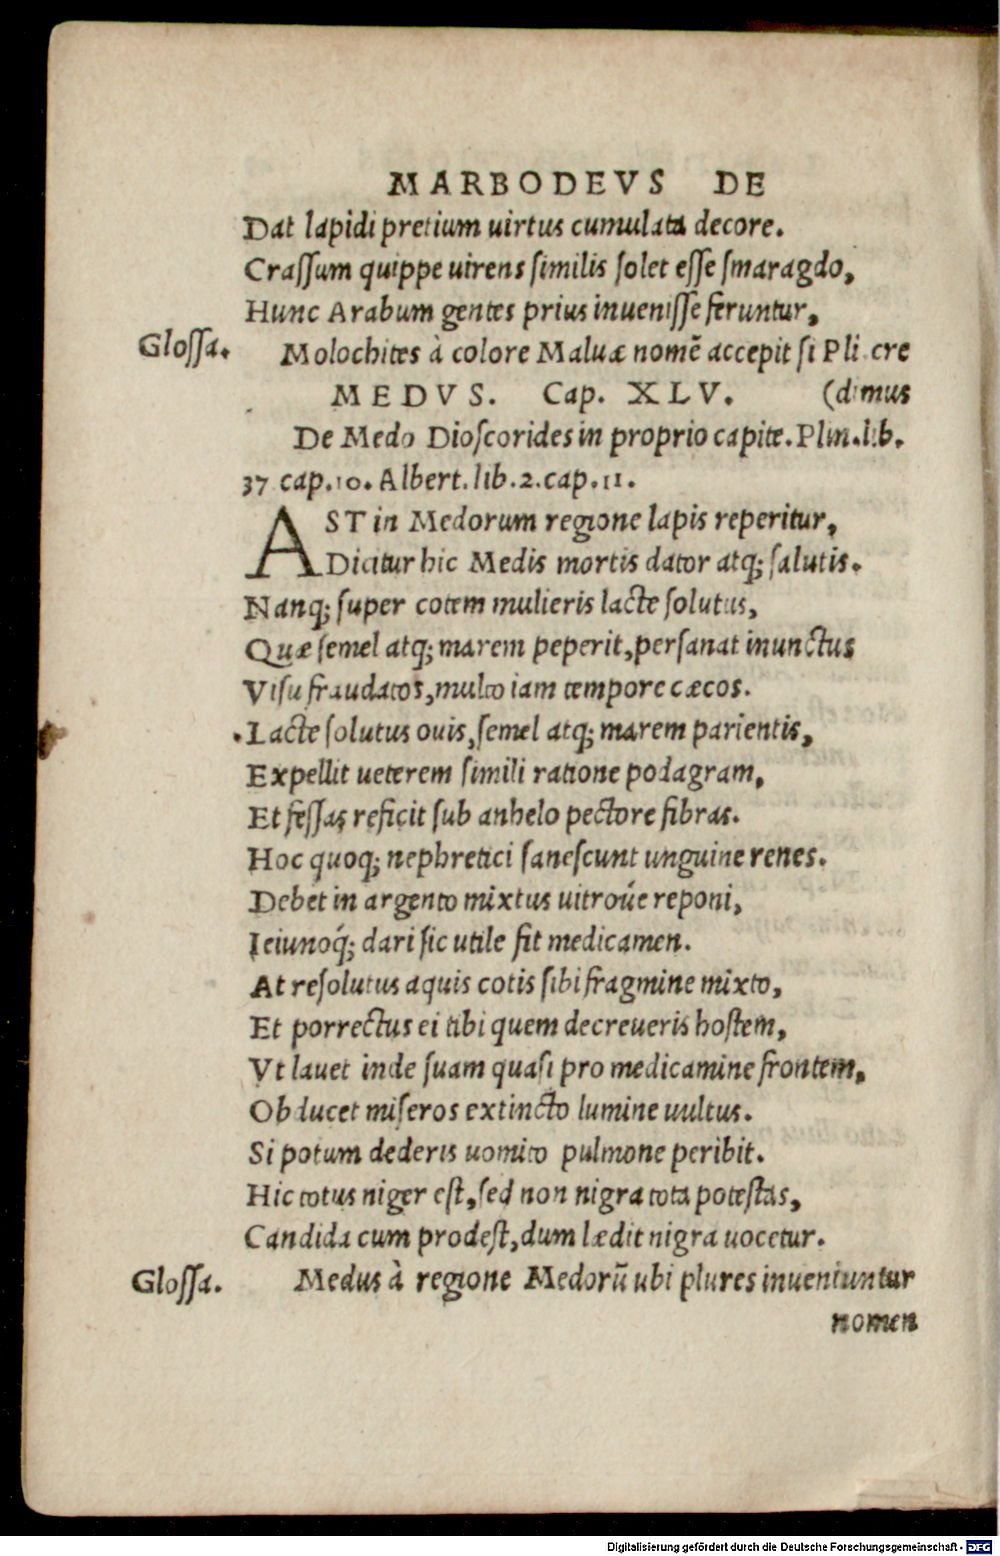 MARBODEVS DE
Dat lapidi pretium uirtus cumulata decore.
Crassum quippe uirens similis solet esse smaragdo,
Hunc Arabum gentes prius inuenisse feruntur,
Glossa. Molochites à colore Maluæ nomē accepit si Pli cre
MEDVS. Cap. XLV. (dimus
De Medo Dioscorides in proprio capite. Plin. lib.
37 cap. 10. Albert. lib. 2. cap. 11.
AST in Medorum regione lapis reperitur,
Dicitur hic Medis mortis dator atq; salutis.
Nanq; super cotem mulieris lacte solutus,
Quæ semel atq; marem peperit, persanat inunctus
Visu fraudatos, multo iam tempore cæcos.
Lacte solutus ouis, semel atq; marem parientis,
Expellit ueterem simili ratione podagram,
Et fessas reficit sub anhelo pectore fibras.
Hoc quoq; nephretici sanescunt unguine renes.
Debet in argento mixtus uitroúe reponi,
Ieiunoq́; dari sic utile fit medicamen.
At resolutus aquis cotis sibi fragmine mixto,
Et porrectus ei tibi quem decreueris hostem,
Vt lauet inde suam quasi pro medicamine frontem,
Obducet miseros extincto lumine uultus.
Si potum dederis uomito pulmone peribit.
Hic totus niger est, sed non nigra tota potestas,
Candida cum prodest, dum lædit nigra uocetur.
Glossa. Medus à regione Medorū ubi plures inueniuntur
nomen
Digitalisierung gefördert durch die Deutsche Forschungsgemeinschaft - DFG